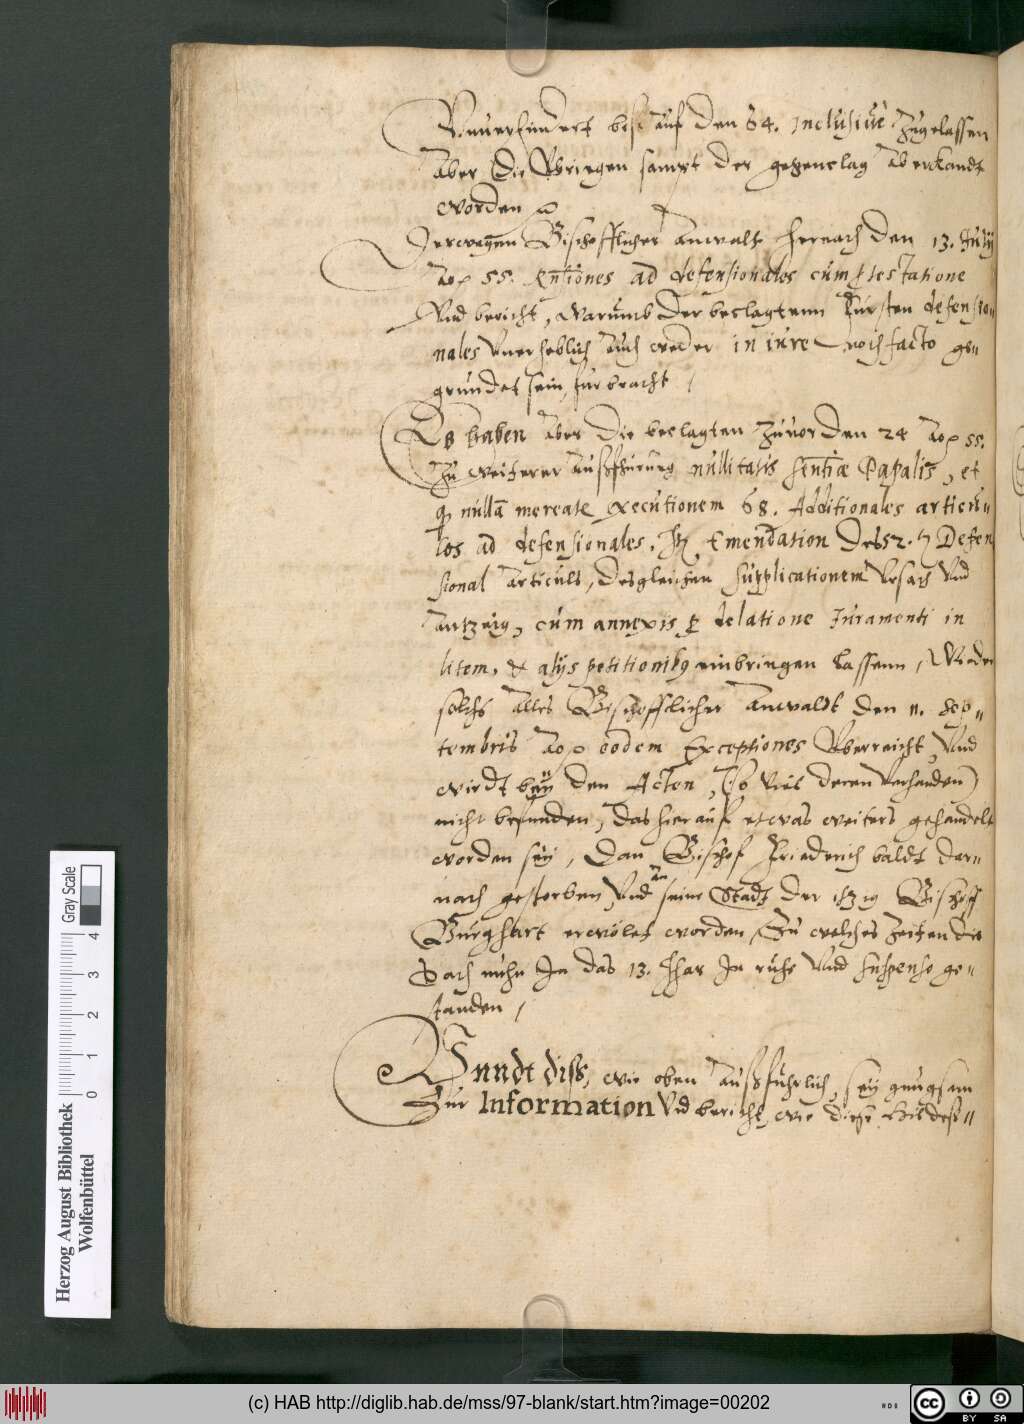 Vnuerhindert biss auf den 84. inclusiue zugelassen
Aber die Vbrigen sampt der gegenclag aberkandt
worden
Derwegen Bischofflicher Anwalt hernach den 13. July
Ao 55. Exceptiones ad defensionales cum protestatione
Vnd bericht, Warumb der beclagtenn Fürsten defensio„
nales Vnerheblich auch weder in iure noch facto ge„
gründet sein, fürbracht /
Es haben Aber die beclagten zuuor den 24 Ao 55.
Zu weiterer Außfürung nullitatis sententiæ Papalis, et
quod nullam mereatur executionem 68. Additionales articu„
los ad defensionales, Emendation des 52. Defen
sional Articuls, desgleichen Supplicationem Vrsach Vnd
Antzeig, cum annexis pro delatione Juramenti in
litem, & alijs petitionibus einbringen lassenn, Wider
solchs Alles Bischofflicher Anwaldt den 11. Sep„
tembris Ao eodem Exceptiones Vberreicht, Vnd
wirdt beÿ den Acten, (So Viel deren Verhanden)
nicht befunden, Das hierauf etwas weiters gehandelt
worden seÿ, Dan Bischof Friederich baldt dar„
nach gestorben, Vnd an seine Stadt der itzig Bischoff
Burghart erwölet worden, Zu welches Zeiten die
Sach nuhn In das 13. Jhar In ruhe Vnd suspenso ge„
standen /
Vnndt diss, wie oben Außführlich, seÿ gnugsam
Zur Information Vnd bericht, wie diese Hildess„
Gray Scale
0 1 2 3 4
Herzog August Bibliothek
Wolfenbüttel
(c) HAB http://diglib.hab.de/mss/97-blank/start.htm?image=00202
cc BY SA